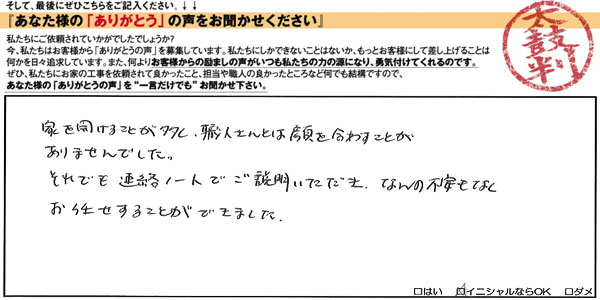 そして、最後にぜひこちらをご記入ください。
『あなた様の「ありがとう」の声をお聞かせください』
私たちにご依頼されていかがでしたでしょうか?
今、私たちはお客様から「ありがとうの声」を募集しています。私たちにしかできないことはないか、もっとお客様にして差し上げることは
何かを日々追求しています。また、何よりお客様からの励ましの声がいつも私たちの力の源になり、勇気付けてくれるのです。
ぜひ、私たちにお家の工事を依頼されて良かったこと、担当や職人の良かったところなど何でも結構ですので、
あなた様の「ありがとうの声」を“一言だけでも”お聞かせ下さい。
太鼓判
家を開けることが多く、職人さんとは顔を合わすことが
ありませんでした。
それでも連絡ノートでご説明いただき、なんの不安もなく
お任せすることができました。
□はい □イニシャルならOK □ダメ